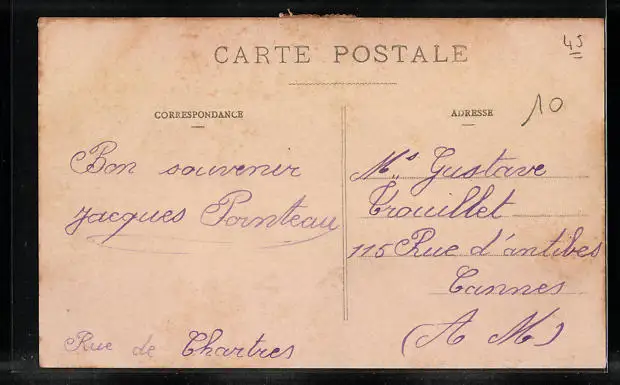 CARTE POSTALE
45
10
CORRESPONDANCE
Bon souvenir
Jacques Pointeau
Rue de Chartres
ADRESSE
Mr Gustave
Trouillet
115 Rue d'antibes
Cannes
(A M)